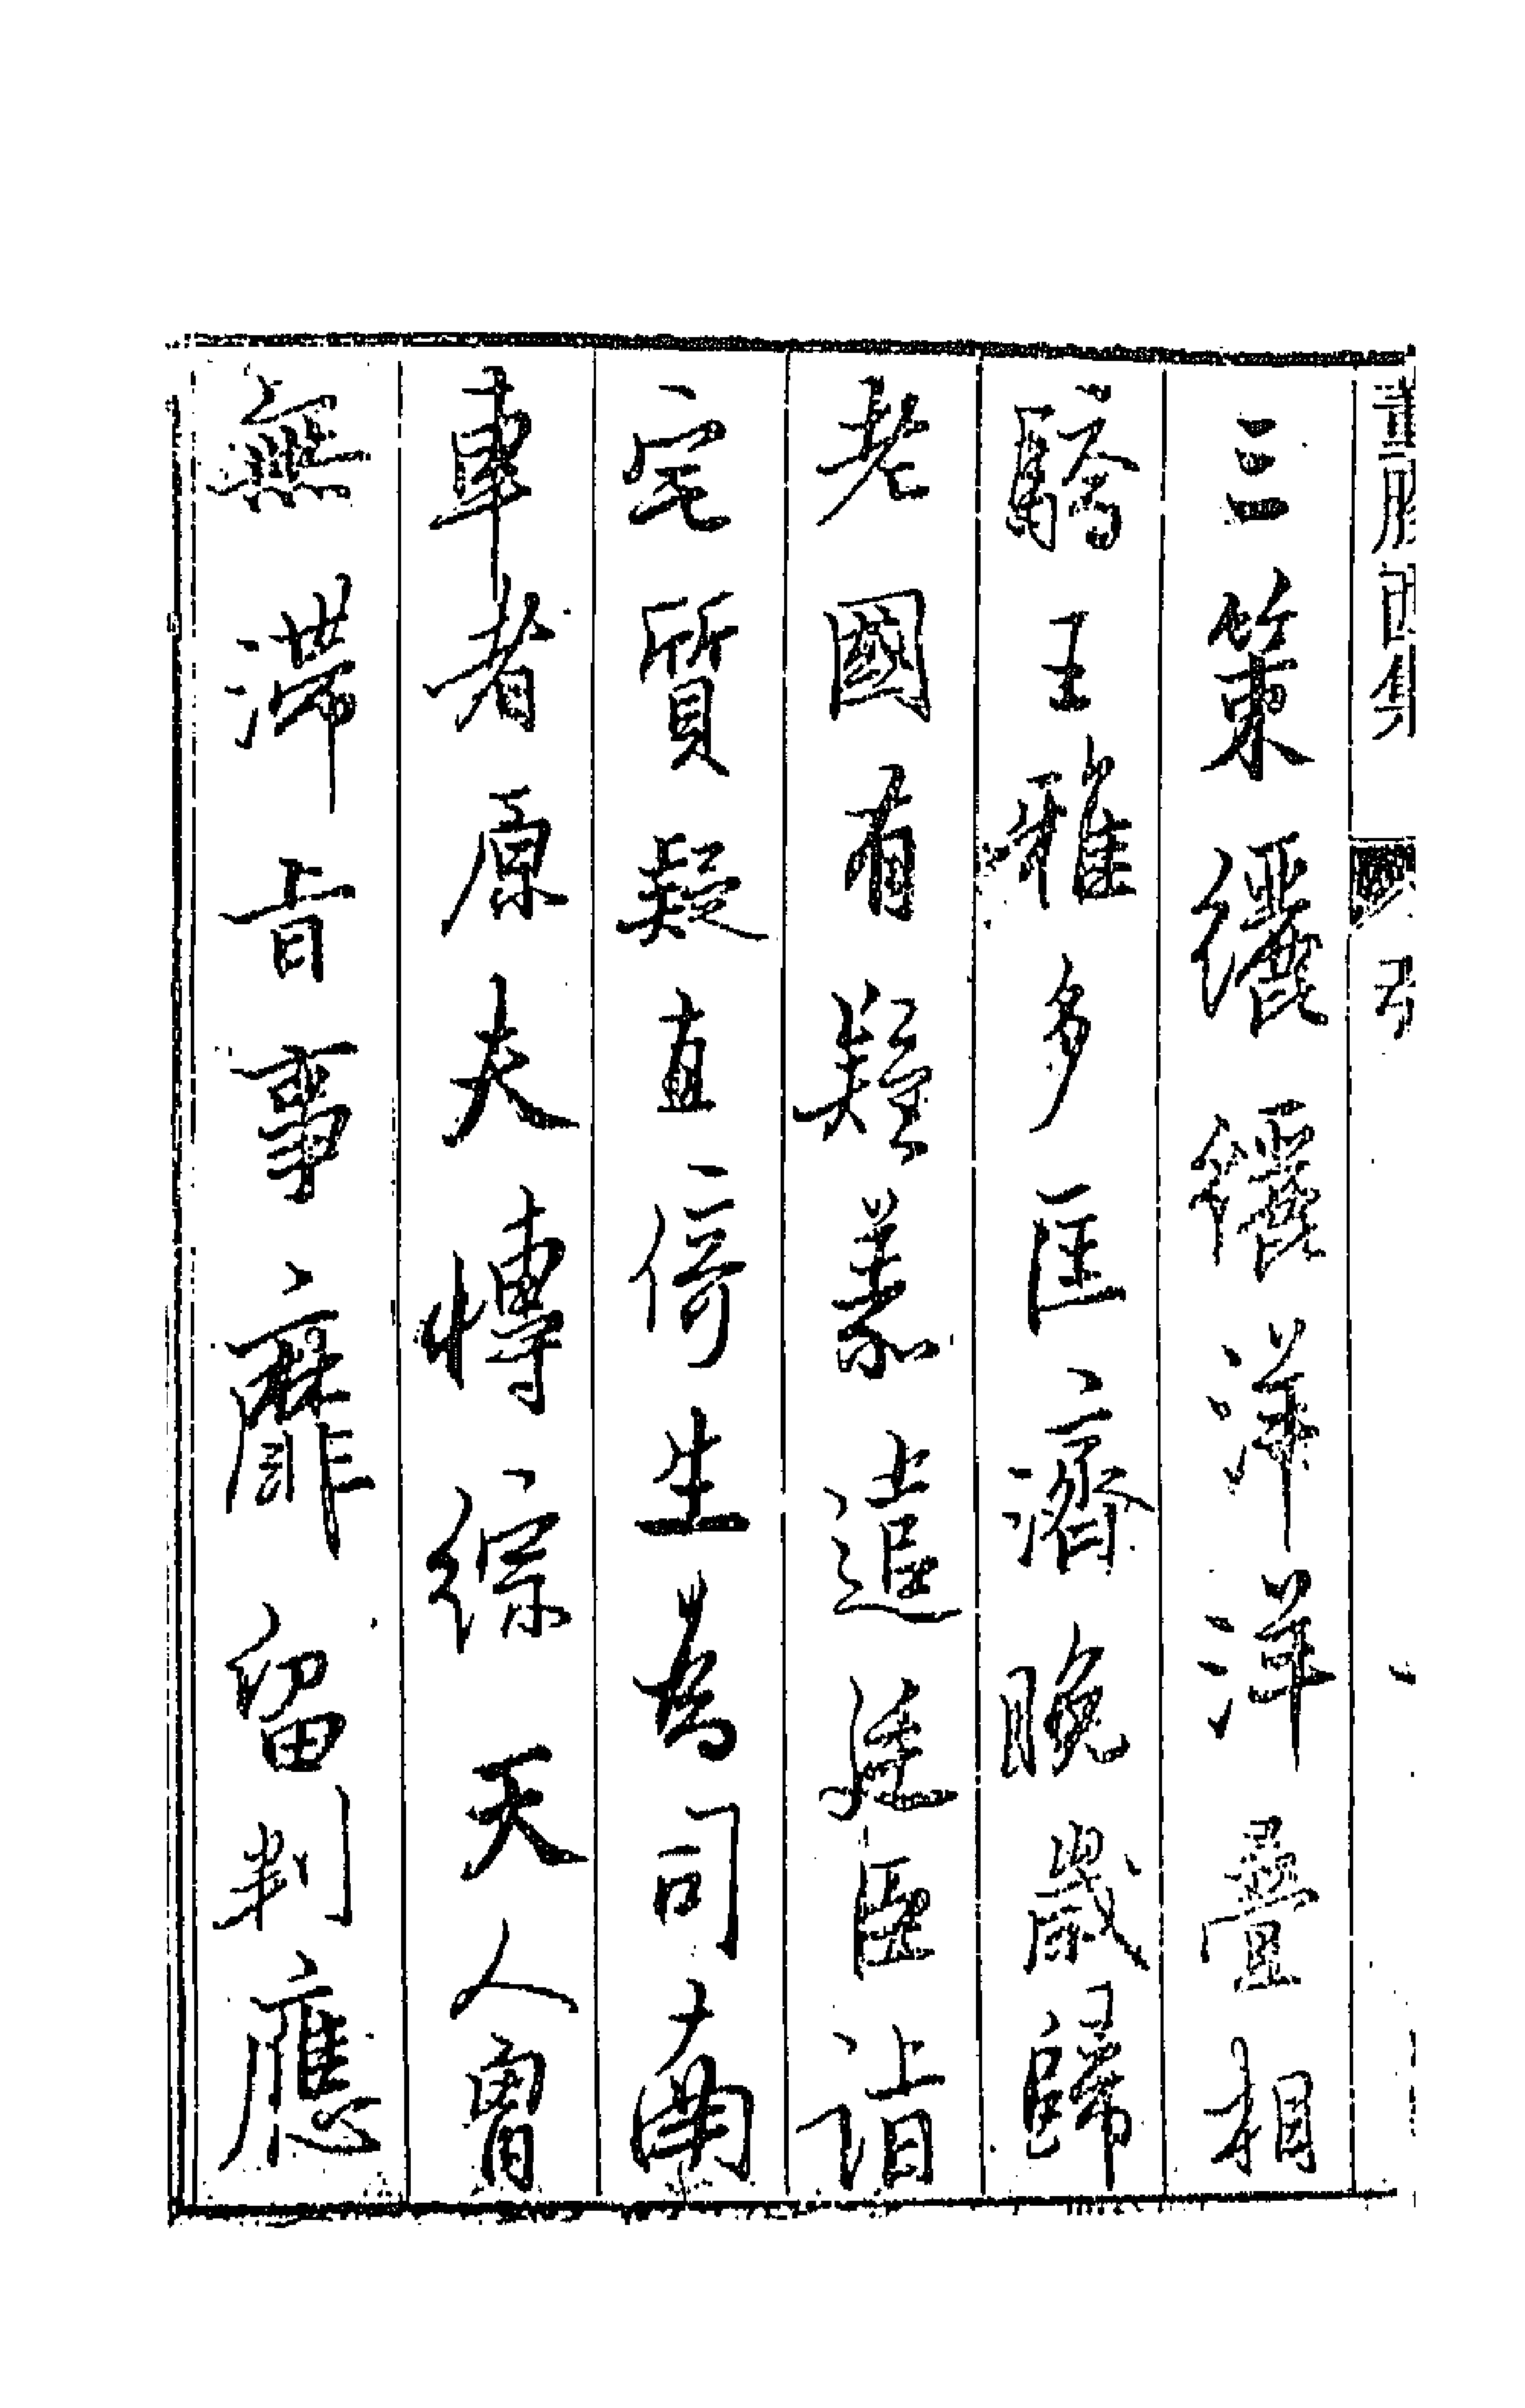 董膠西集
三策纚纚洋洋疊相
驕王雅多匡濟晚歲歸
老國有疑義遣廷臣詣
宅質疑直倚生為司南
車者原夫愽綜天人胷
無滯旨事靡留判應